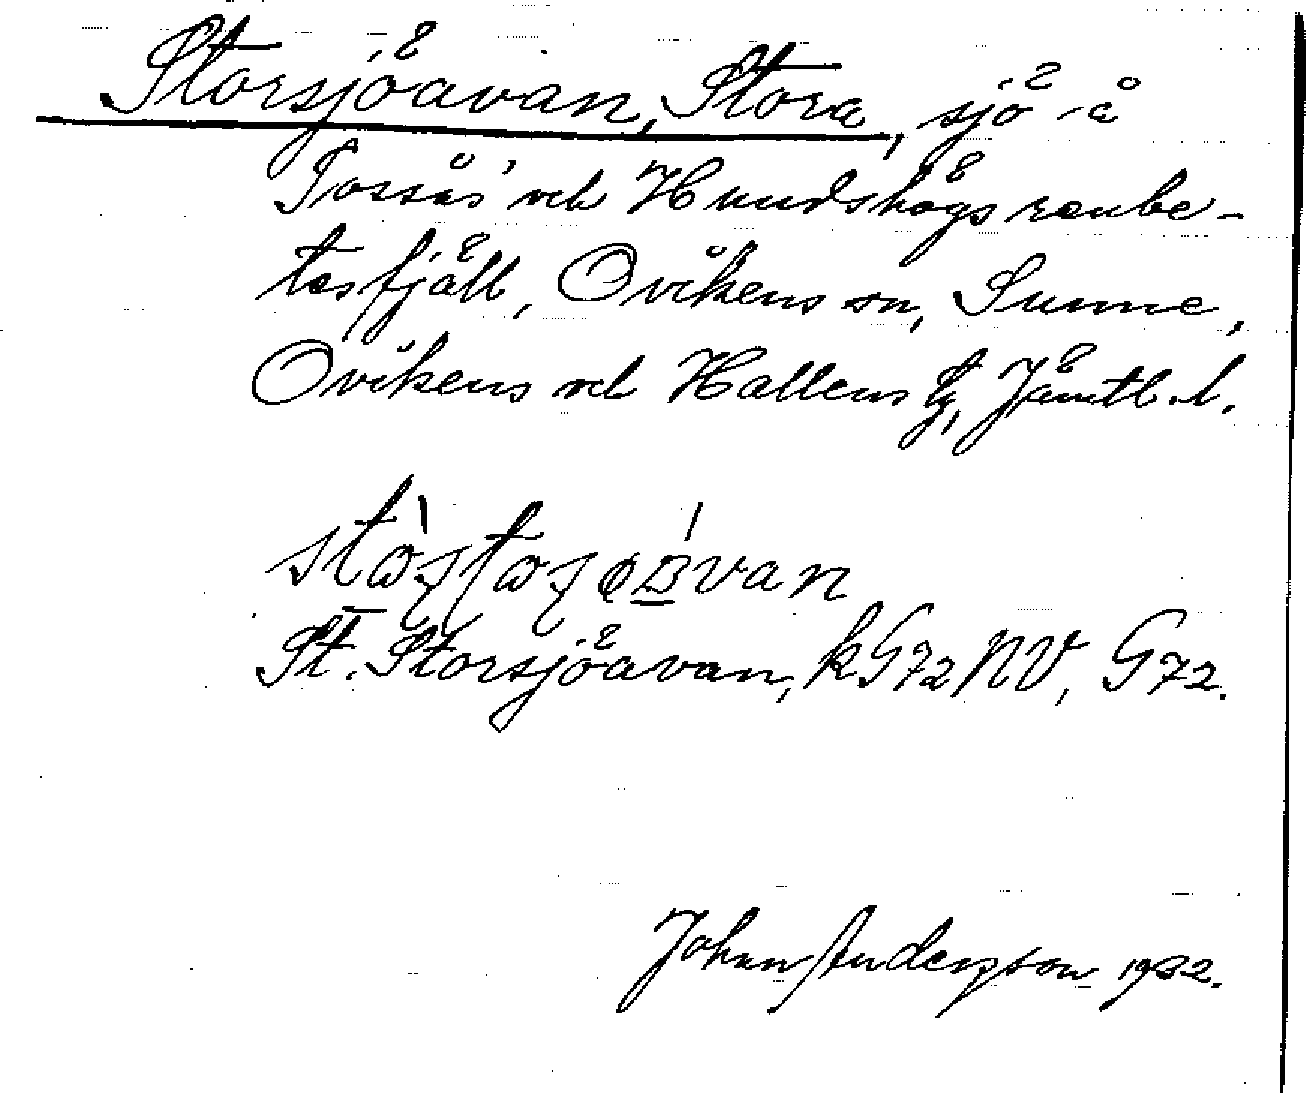 Storsjöavan, Stora, sjö å
Tossås och Hundshögs renbe-
tesfjäll, Ovikens sn, Sunne,
Ovikens och Hallens tg, Jämtl. l.
St. Storsjöavan, kG72NV, G72.
John Andersson 1932.